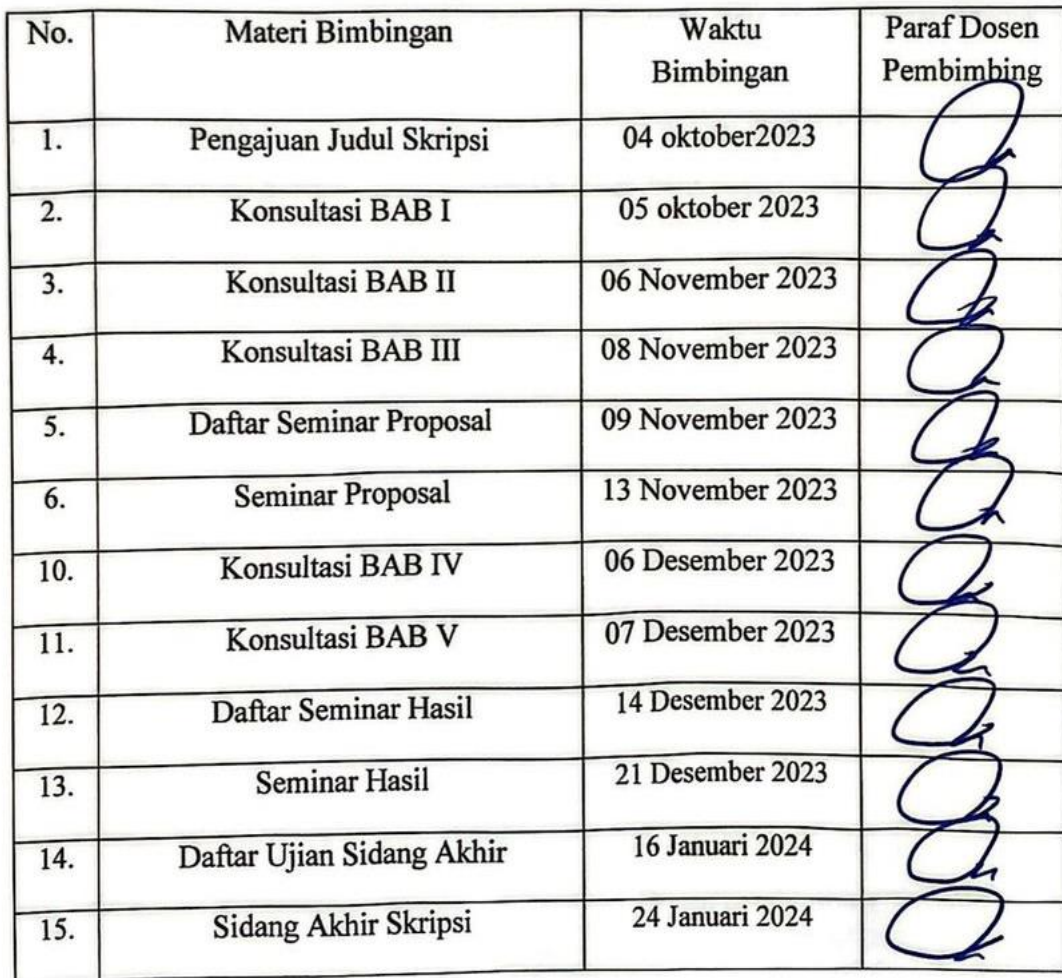 No. Materi Bimbingan Waktu Bimbingan Paraf Dosen Pembimbing
1. Pengajuan Judul Skripsi 04 oktober2023
2. Konsultasi BAB I 05 oktober 2023
3. Konsultasi BAB II 06 November 2023
4. Konsultasi BAB III 08 November 2023
5. Daftar Seminar Proposal 09 November 2023
6. Seminar Proposal 13 November 2023
10. Konsultasi BAB IV 06 Desember 2023
11. Konsultasi BAB V 07 Desember 2023
12. Daftar Seminar Hasil 14 Desember 2023
13. Seminar Hasil 21 Desember 2023
14. Daftar Ujian Sidang Akhir 16 Januari 2024
15. Sidang Akhir Skripsi 24 Januari 2024